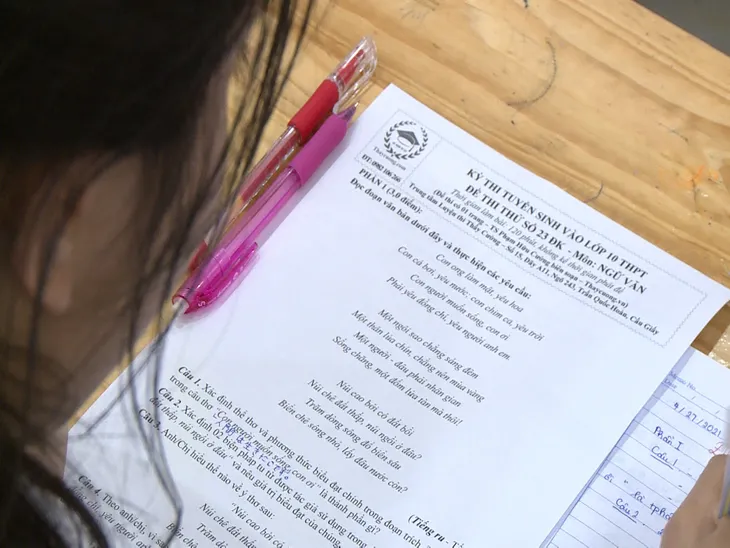 Thaycuong.com
ĐT: 0982 106 266
KỲ THI TUYỂN SINH VÀO LỚP 10 THPT
Thời gian làm bài: 120 phút, không kể thời gian phát đề
ĐỀ THI THỬ SỐ 23 ĐK - Môn: NGỮ VĂN
(Đề thi có 01 trang - TS Phạm Hữu Cường biên soạn - Thaycuong.vn)
Trung tâm Luyện thi Thầy Cường - Số 18, Dãy A11, Ngõ 243, Trần Quốc Hoàn, Cầu Giấy
PHẦN I (3,0 điểm):
Đọc đoạn văn bản dưới đây và thực hiện các yêu cầu:
Con ong làm mật, yêu hoa
Con cá bơi, yêu nước, con chim ca, yêu trời
Con người muốn sống, con ơi
Phải yêu đồng chí, yêu người anh em
Một ngôi sao chẳng sáng đêm
Một thân lúa chín, chẳng nên mùa vàng
Một người - đâu phải nhân gian
Sống chăng, một đốm lửa tàn mà thôi!
Núi cao bởi có đất bồi
Núi chê đất thấp, núi ngồi ở đâu?
Trăm dòng sông đổ biển sâu
Biển chê sông nhỏ, lấy đâu nước còn?
(Tiếng ru - T
Câu 1. Xác định thể thơ và phương thức biểu đạt chính trong đoạn trích,
trong câu thơ "Con người muốn sống con ơi" là thành phần gì?
Câu 2. Xác định 02 biện pháp tu từ được tác giả sử dụng trong
đất thấp, núi ngồi ở đâu?" và nêu giá trị biểu đạt của chúng.
Câu 3. Anh/Chị hiểu thế nào về ý thơ sau:
"Núi cao bởi có đất bồi
Núi chê đất thấp
Trăm dò
Biển ch
Câu 4. Theo anh/chị, vì sa
chí, yêu người anh em
4/27/2021
Phần I
Câu 1
Câu 2